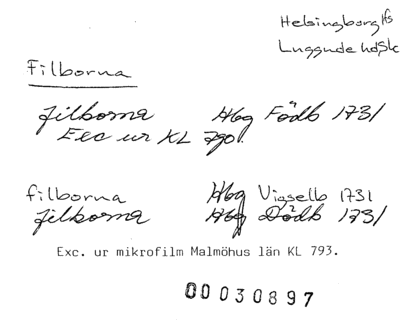 Helsingborg Hfs
Luggude hd Sk
Filborna
Filborna Hbg Födb 1731
Exc ur KL 790.
Filborna Hbg Vigselb 1731
Filborna Hbg Dödb 1731
Exc. ur mikrofilm Malmöhus län KL 793.
00030897